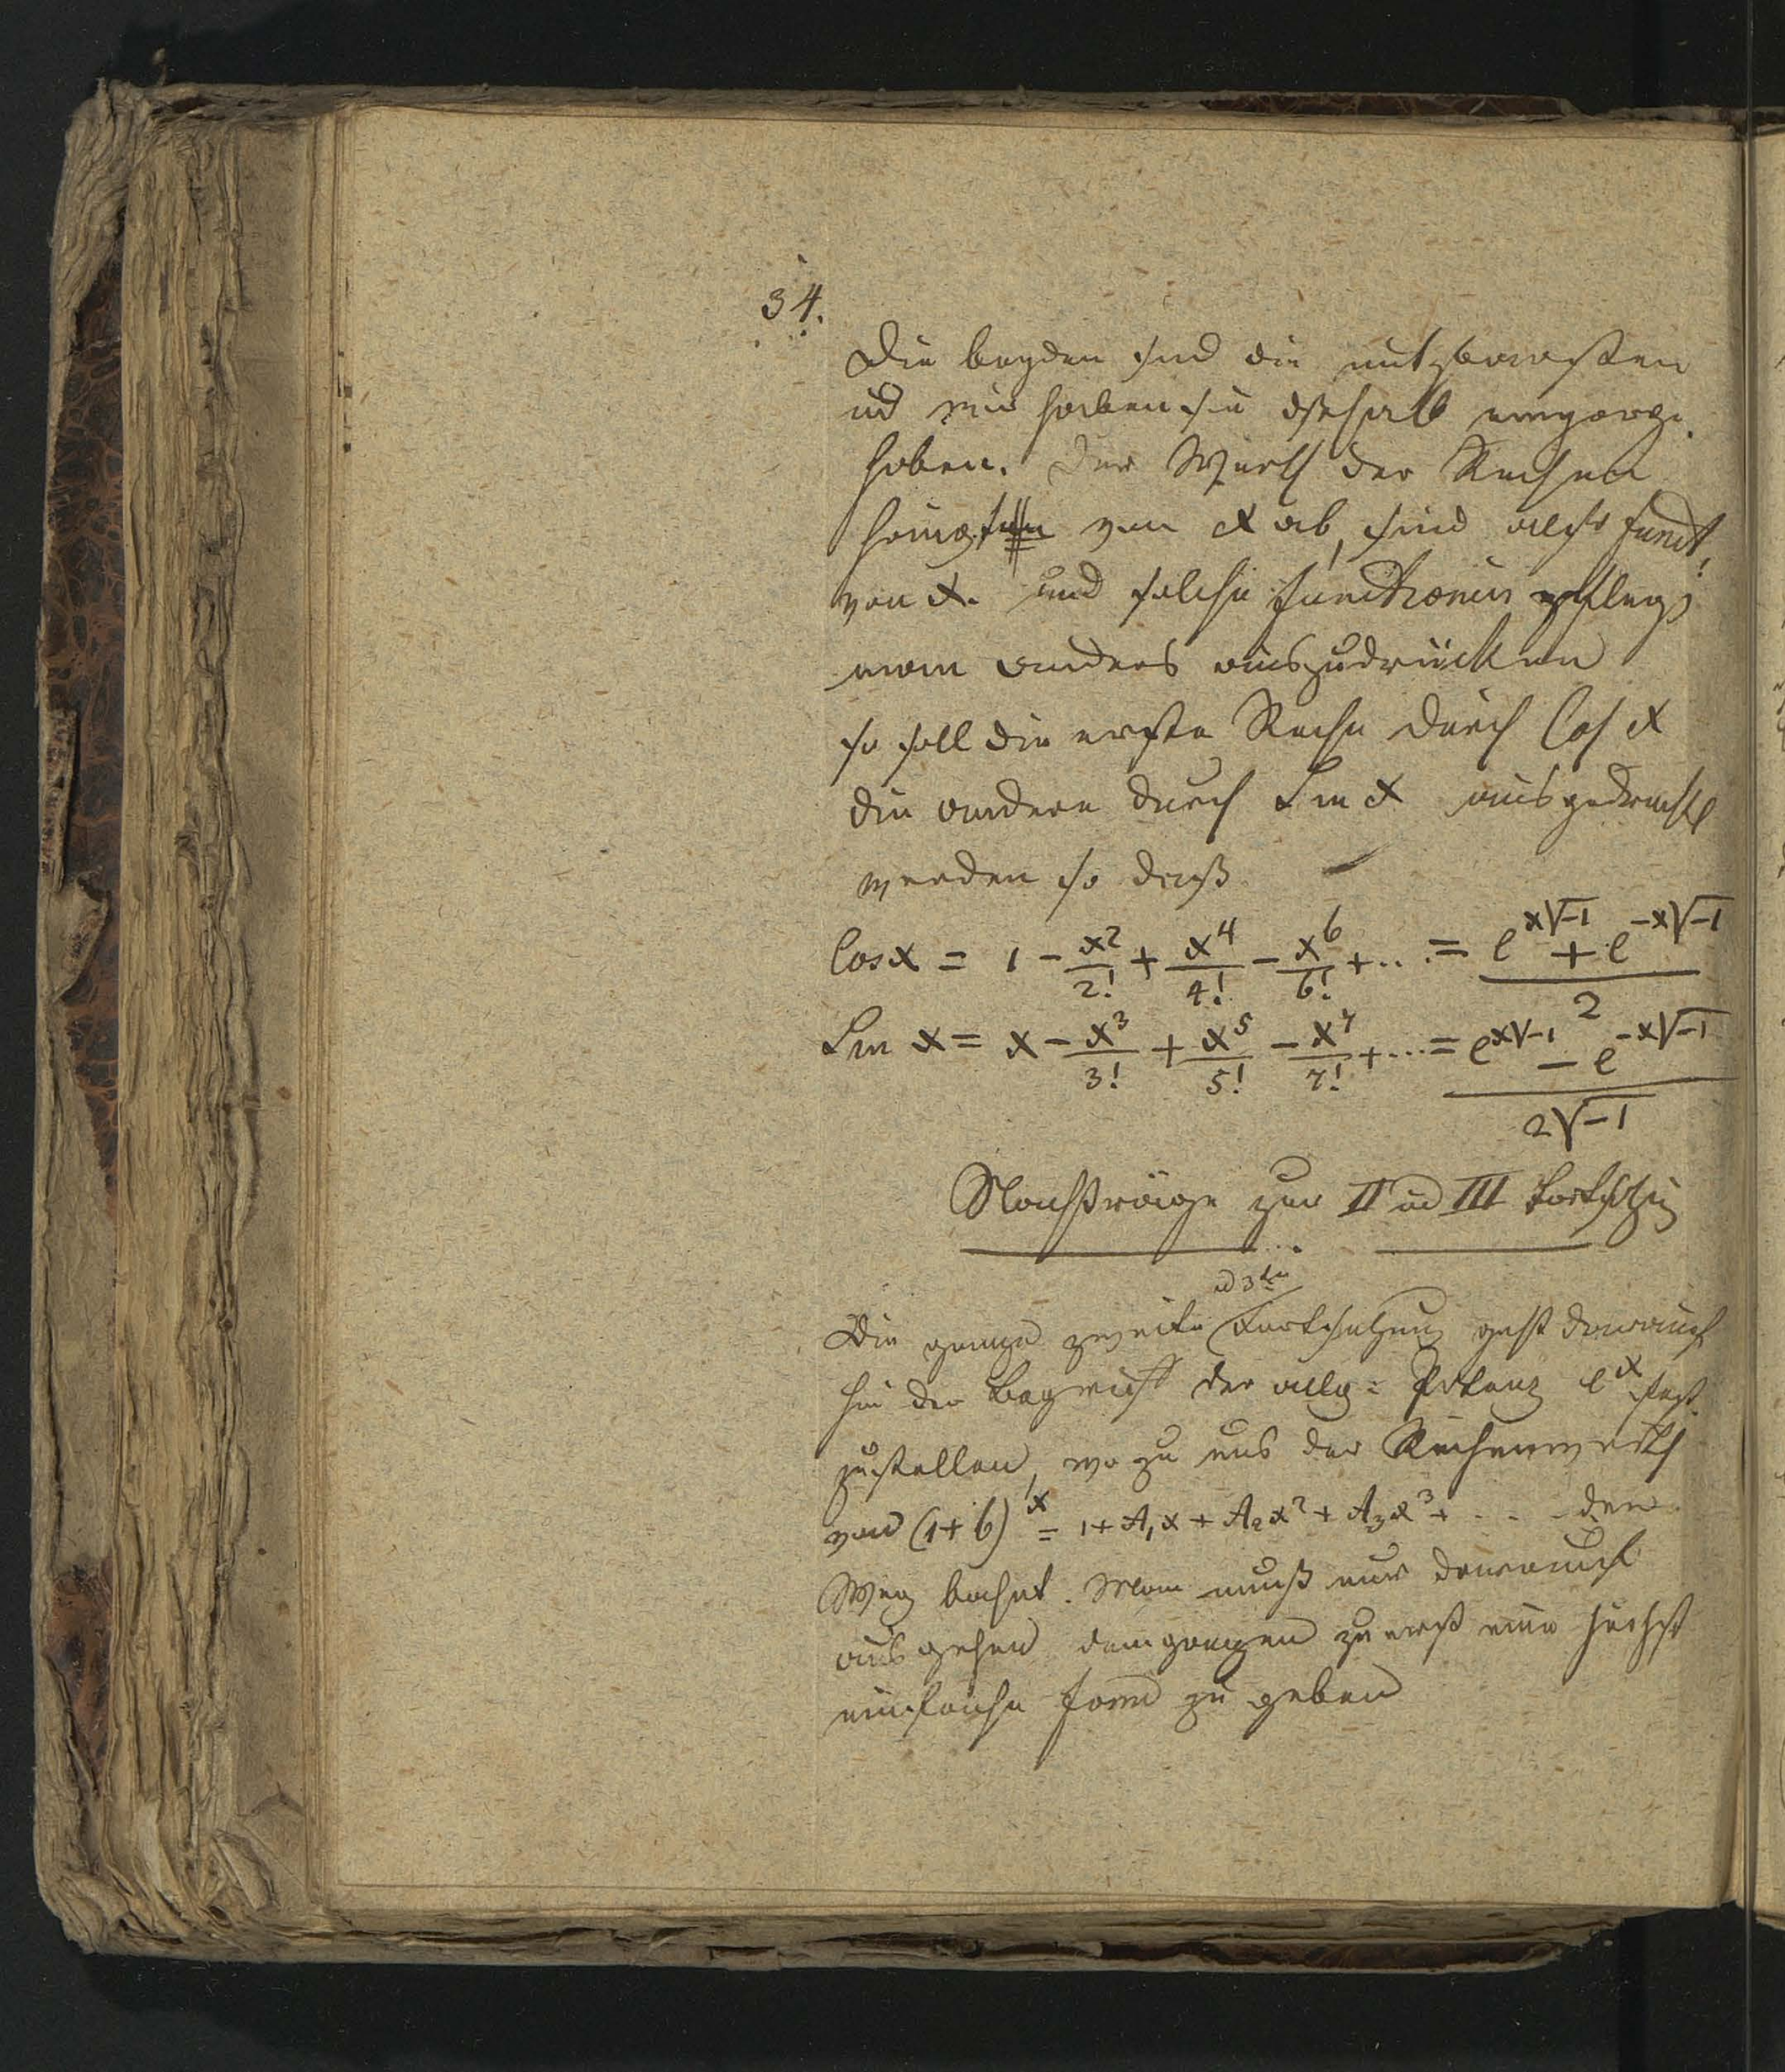 34.
Die beyden sind die nutzbarsten
ud wir haben sie deshalb
hoben. Der Werth der Reihen
hängt von x ab, sind also funct.
von x. und solche functionen pflegt
man anders auszudrücken
so soll die erste Reihe durch Cos x
die andere durch Sin x ausgedrückt
werden so daß
Cos x = 1 - x²/2! + x⁴/4! - x⁶/6! + ... = (e^{x√-1} + e^{-x√-1})/2
Sin x = x - x³/3! + x⁵/5! - x⁷/7! + ... = (e^{x√-1} - e^{-x√-1})/(2√-1)
Nachträge zur II ud III Fortsetzung
ud 3te
Die ganze zweite Fortsetzung geht darauf
hin den Begriff der allg: Potenz e^x fest
zustellen, wozu uns der Reihenwerth
von (1+b)^x = 1 + A₁x + A₂x² + A₃x³ + . . den
Weg bahnt. Man muß nur darauf
ausgehen dem ganzen zuerst eine höchst
einfache Form zu geben